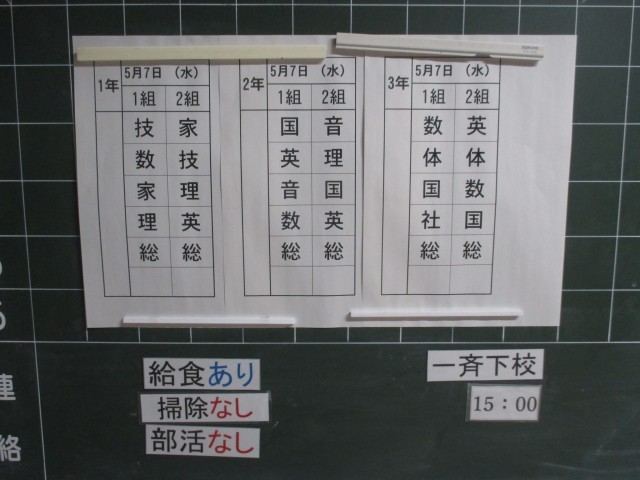 1年
5月7日 (水)
1組 2組
技 家
数 技
家 理
理 英
総 総
2年
5月7日 (水)
1組 2組
国 音
英 理
音 国
数 英
総 総
3年
5月7日 (水)
1組 2組
数 英
体 体
国 数
社 国
総 総
給食あり
掃除なし
部活なし
一斉下校
15:00
連
絡